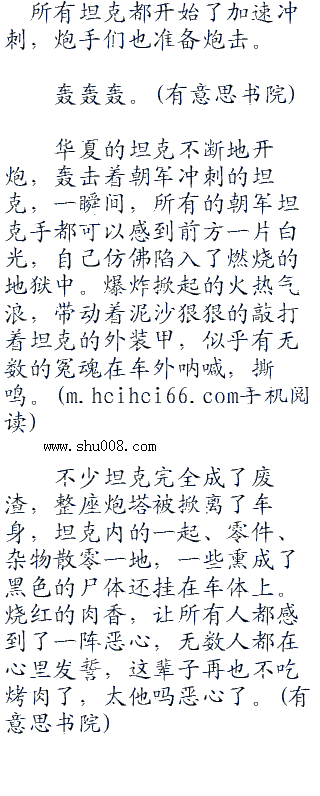 所有坦克都开始了加速冲
刺，炮手们也准备炮击。
轰轰轰。(有意思书院)
华夏的坦克不断地开
炮，轰击着朝军冲刺的坦
克，一瞬间，所有的朝军坦
克手都可以感到前方一片白
光，自己仿佛陷入了燃烧的
地狱中。爆炸掀起的火热气
浪，带动着泥沙狠狠的敲打
着坦克的外装甲，似乎有无
数的冤魂在车外呐喊，撕
鸣。(m.hcihci66.com手机阅
读)
www.shu008.com
不少坦克完全成了废
渣，整座炮塔被掀离了车
身，坦克内的一起、零件、
杂物散零一地，一些熏成了
黑色的尸体还挂在车体上。
烧红的肉香，让所有人都感
到了一阵恶心，无数人都在
心里发誓，这辈子再也不吃
烤肉了，太他吗恶心了。(有
意思书院)